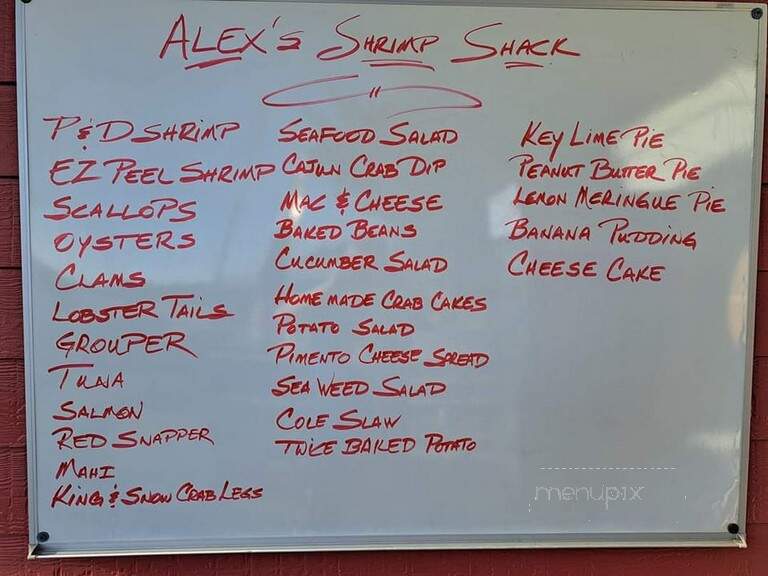 ALEX'S SHRIMP SHACK
P&D SHRIMP
EZ PEEL SHRIMP
SCALLOPS
OYSTERS
CLAMS
LOBSTER TAILS
GROUPER
TUNA
SALMON
RED SNAPPER
MAHI
KING & SNOW CRAB LEGS
SEAFOOD SALAD
CAJUN CRAB DIP
MAC & CHEESE
BAKED BEANS
CUCUMBER SALAD
HOMEMADE CRAB CAKES
POTATO SALAD
PIMENTO CHEESE SPREAD
SEA WEED SALAD
COLE SLAW
TWICE BAKED POTATO
KEY LIME PIE
PEANUT BUTTER PIE
LEMON MERINGUE PIE
BANANA PUDDING
CHEESE CAKE
menupix